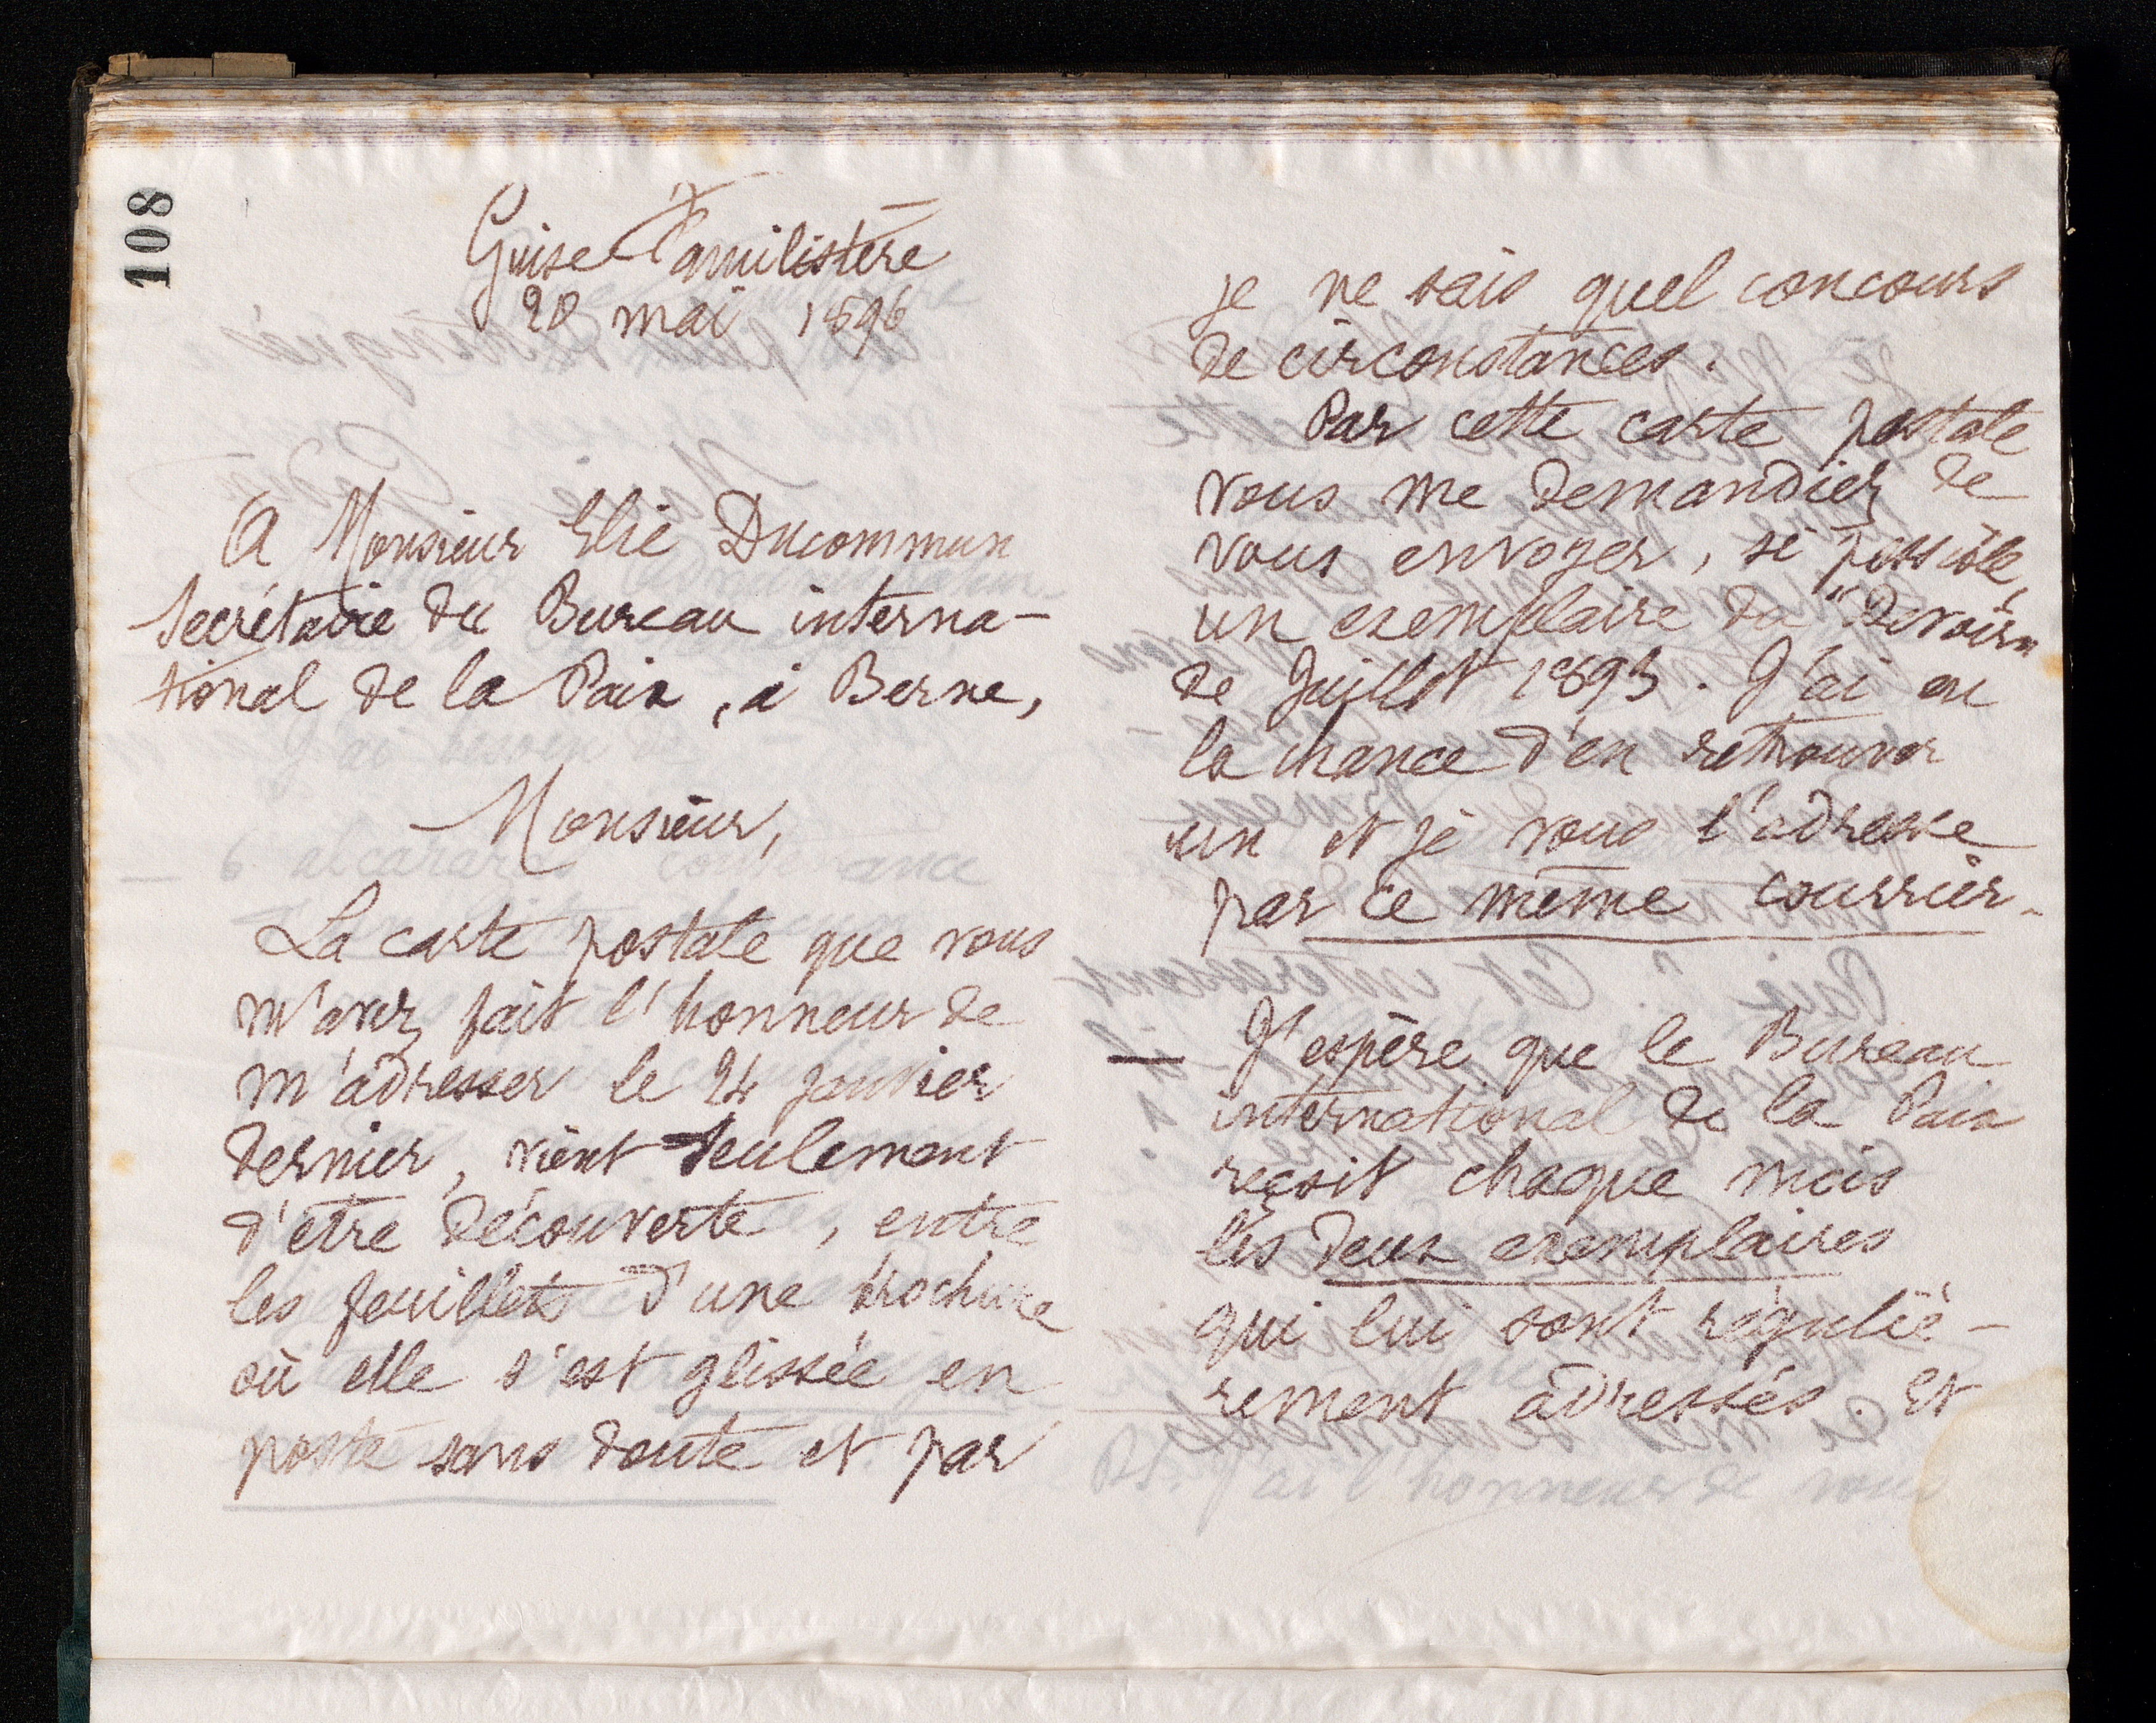 108
Guise Familistère
20 mai 1896
A Monsieur Elie Ducommun
Secrétaire du Bureau interna-
tional de la Paix, à Berne,
Monsieur,
La carte postale que vous
m'avez fait l'honneur de
m'adresser le 24 janvier
dernier, vient seulement
d'être découverte, entre
les feuillets d'une brochure
où elle s'est glissée en
poste sans doute et par
je ne sais quel concours
de circonstances.
Par cette carte postale
vous me demandiez de
vous envoyer, si possible,
un exemplaire du "Devoir"
de Juillet 1893. J'ai eu
la chance d'en retrouver
un et je vous l'adresse
par ce même courrier.
— J'espère que le Bureau
international de la Paix
reçoit chaque mois
les deux exemplaires
qui lui sont réguliè-
rement adressés. Et